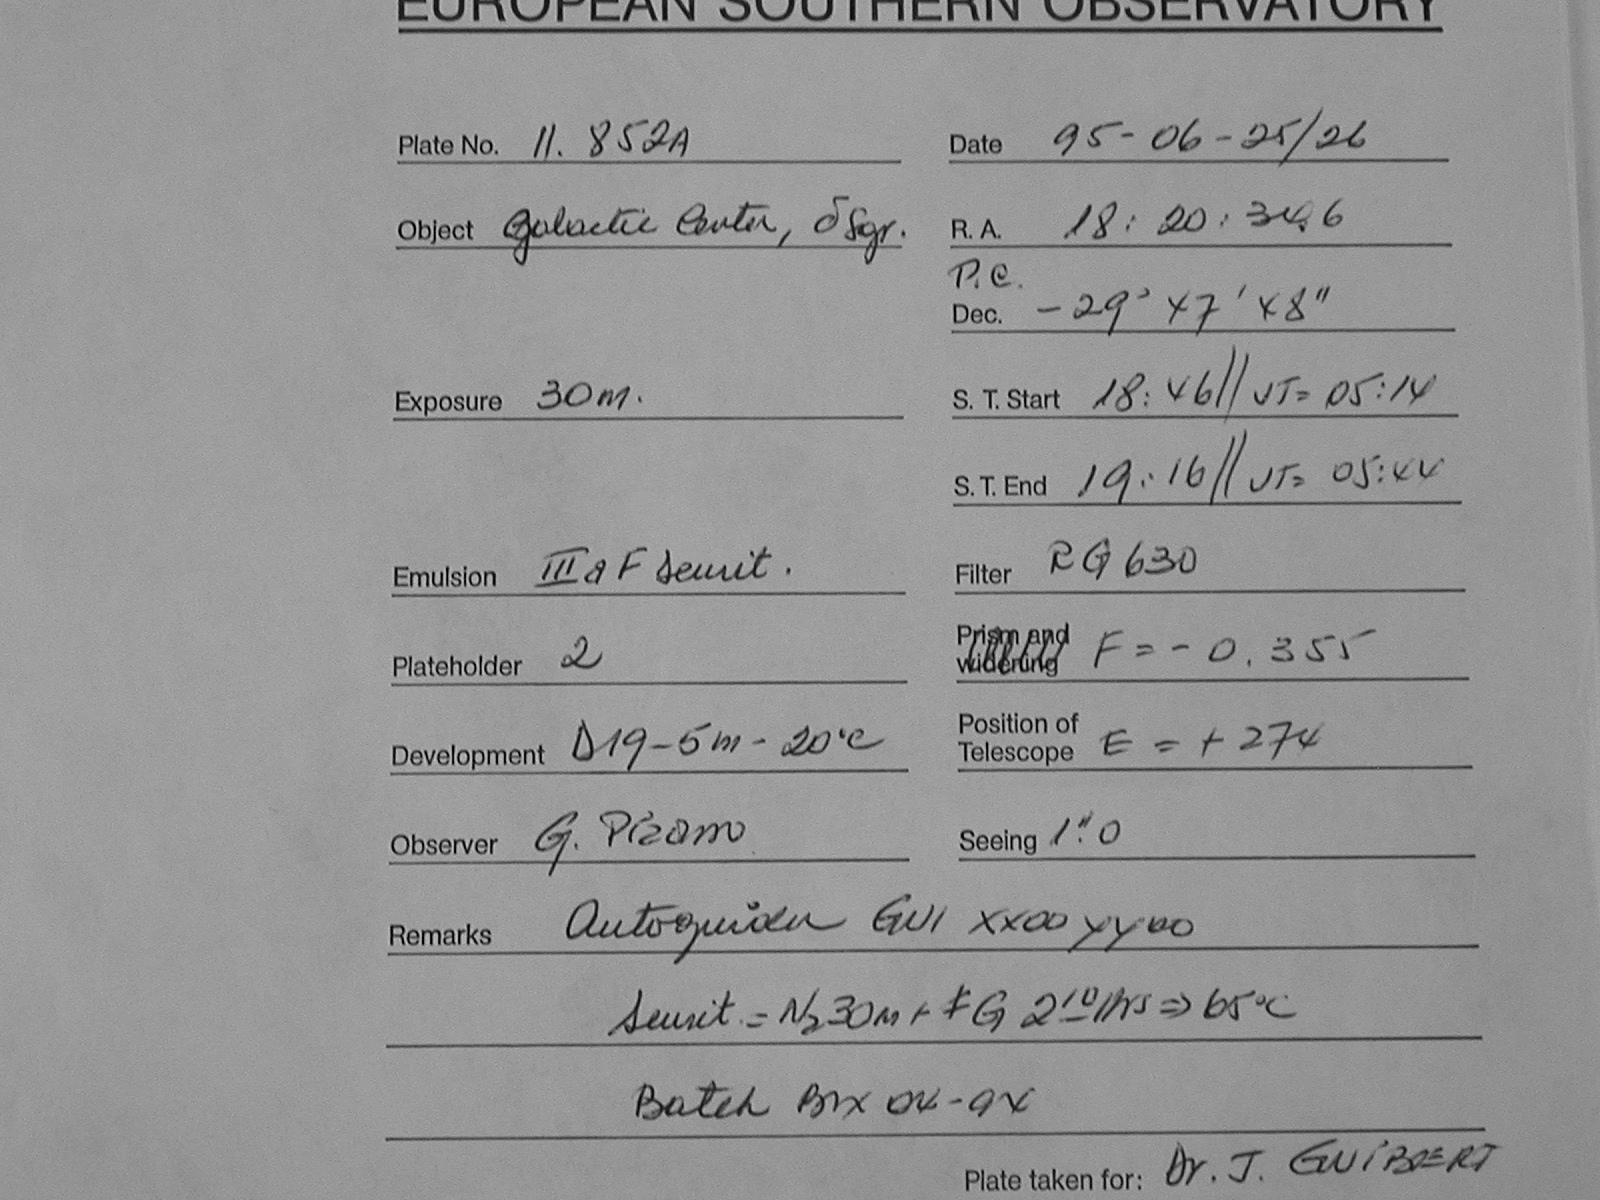 EUROPEAN SOUTHERN OBSERVATORY
Plate No. 11. 852A
Date 95-06-25/26
Object Galactic Center, δ Sgr.
R. A. 18: 20: 34.6
P.C.
Dec. -29° 47' 48"
Exposure 30m.
S. T. Start 18:46// UT= 05:14
S. T. End 19:16// UT= 05:44
Emulsion IIIaF Sensit.
Filter RG630
Plateholder 2
Prism and widening F = - 0.355
Development D19-5m-20°C
Position of Telescope E = + 274
Observer G. Pizarro
Seeing 1".0
Remarks Autoguider GUI XX00 YY00
Sensit. = N2 30m + FG 2 hrs ⇒ 65°C
Batch 04-94
Plate taken for: Dr. J. GUIBERT